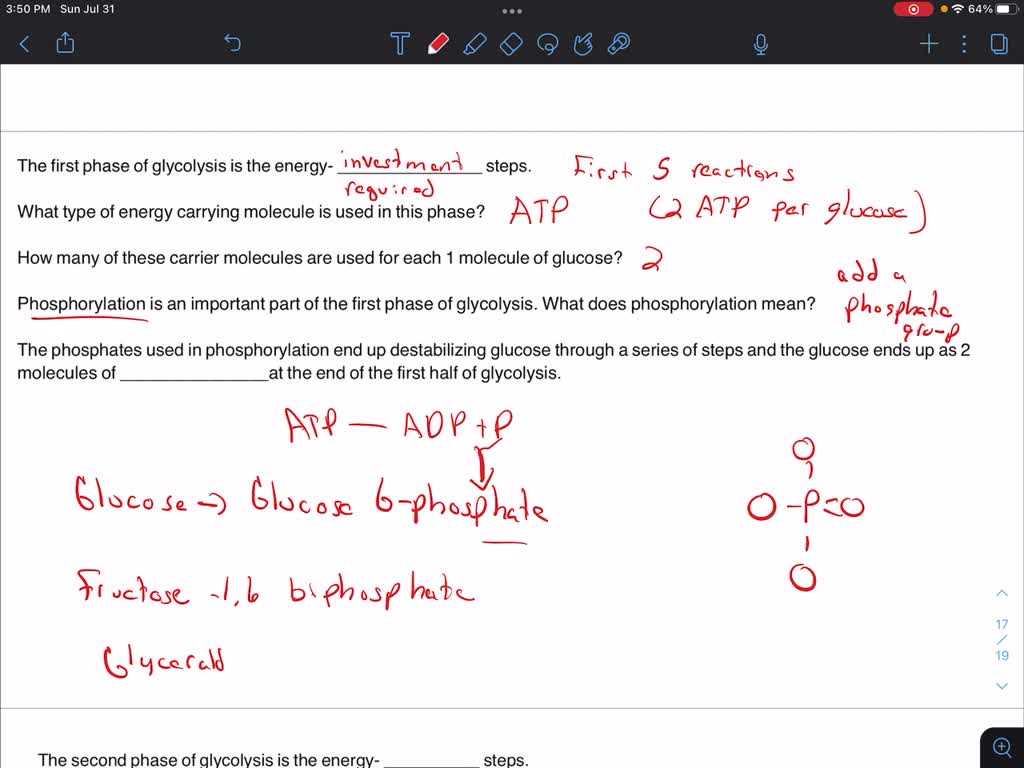 3:50 PM Sun Jul 31
64%
The first phase of glycolysis is the energy- investment steps. First 5 reactions
required
What type of energy carrying molecule is used in this phase? ATP (2 ATP per glucose)
How many of these carrier molecules are used for each 1 molecule of glucose? 2
add a
Phosphorylation is an important part of the first phase of glycolysis. What does phosphorylation mean? phosphate
group
The phosphates used in phosphorylation end up destabilizing glucose through a series of steps and the glucose ends up as 2
molecules of ________________at the end of the first half of glycolysis.
ATP — ADP + P
O
Glucose → Glucose 6-phosphate
O-P=O
O
Fructose -1,6 biphosphate
Glycerald
17
/
19
The second phase of glycolysis is the energy- __________ steps.